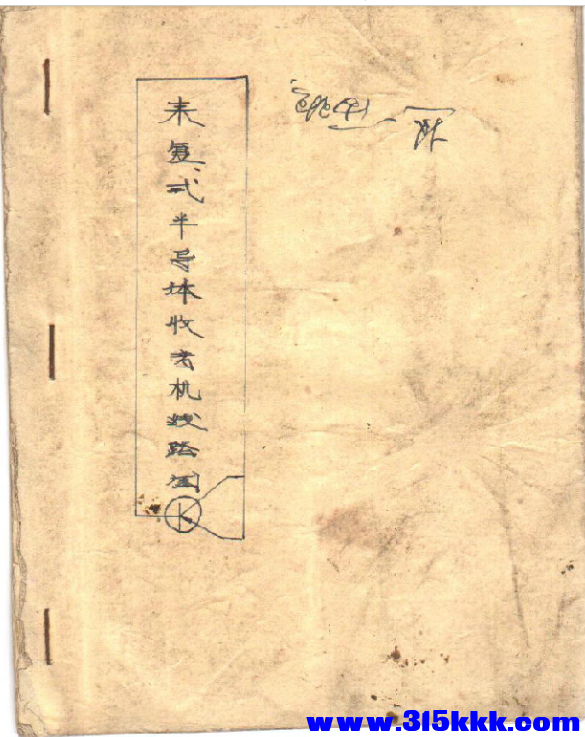 来复式半导体收音机线路图
www.315kkk.com